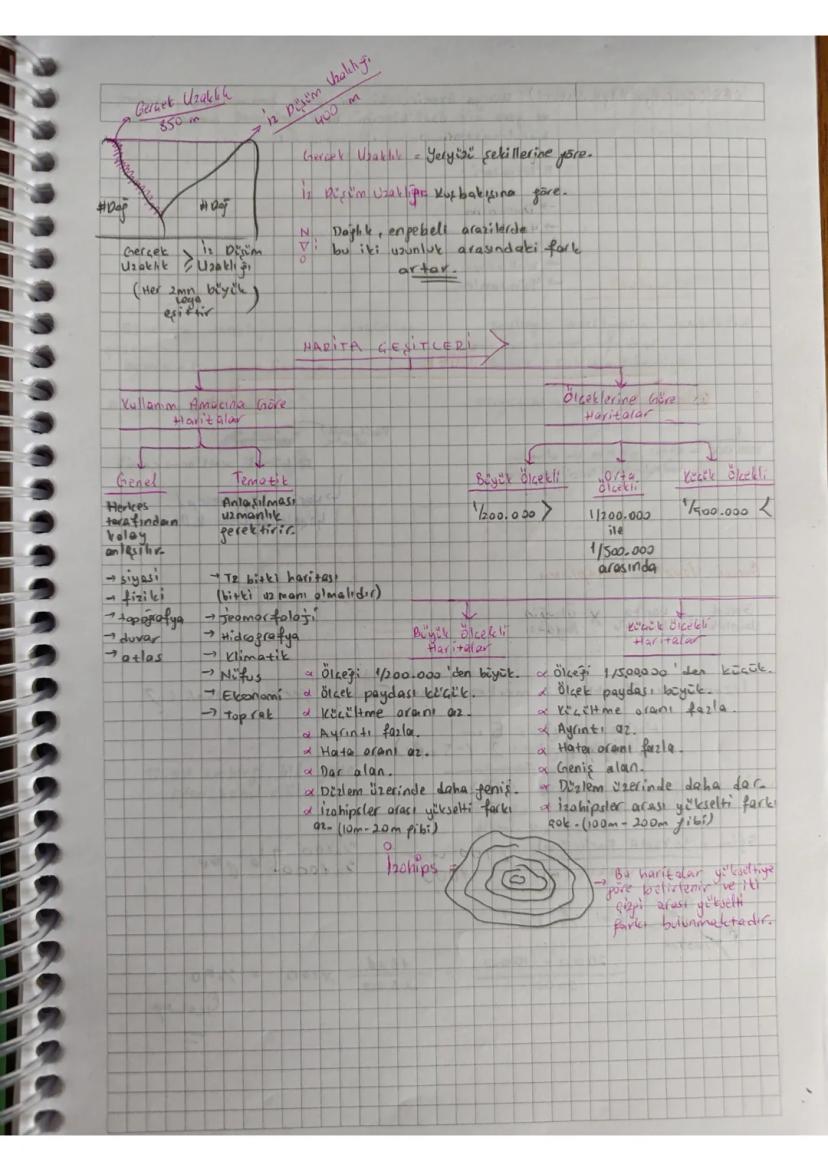 Gerçek Uzaklık
850 m
İz Düşüm Uzaklığı
400 m
#Dağ
#Dağ
Gerçek Uzaklık ≥ İz Düşüm Uzaklığı
(Her zmn büyük
veya
eşittir)
Gerçek Uzaklık = Yeryüzü şekillerine göre.
İz Düşüm Uzaklığı = Kuşbakışına göre.
Dağlık, engebeli arazilerde
bu iki uzunluk arasındaki fark
artar.
HARİTA ÇEŞİTLERİ
Kullanım Amacına Göre
Haritalar
Ölçeklerine Göre
Haritalar
Genel
Herkes
tarafından
kolay
anlaşılır.
→ siyasi
→ fiziki
→ topografya
→ duvar
→ atlas
Tematik
Anlaşılması
uzmanlık
gerektirir.
→ TZ bitki haritası
(bitki uzmanı olmalıdır)
→ Jeomorfoloji
→ Hidrografya
→ Klimatik
→ Nüfus
→ Ekonomi
→ Toprak
Büyük Ölçekli
1/200.000 >
Orta
Ölçekli
1/200.000
ile
1/500.000
arasında
Küçük Ölçekli
1/500.000 <
Büyük Ölçekli
Haritalar
α Ölçeği 1/200.000'den büyük.
α Ölçek paydası küçük.
α Küçültme oranı az.
α Ayrıntı fazla.
α Hata oranı az.
α Dar alan.
α Düzlem üzerinde daha geniş.
α İzohipsler arası yükselti farkı
az. (10m-20m gibi)
Küçük Ölçekli
Haritalar
α Ölçeği 1/500.000'den küçük.
α Ölçek paydası büyük.
α Küçültme oranı fazla.
α Ayrıntı az.
α Hata oranı fazla.
α Geniş alan.
α Düzlem üzerinde daha dar.
α İzohipsler arası yükselti farkı
çok. (100m-200m gibi)
İzohips =
→ Bu haritalar yükseltiye
göre belirlenir ve iki
çizgi arası yükselti
farkı bulunmaktadır.